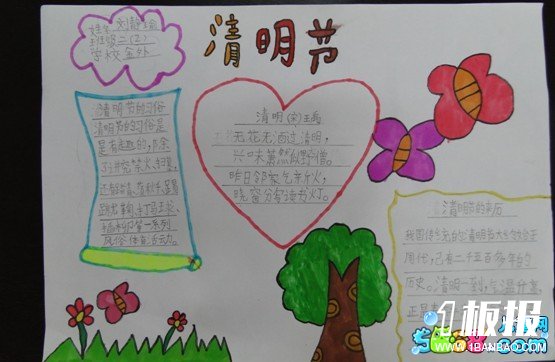 姓名 刘静瑜
班级 二(2)
学校 金外
清明节
清明节的习俗
清明节的习俗是
是有趣的,除
了讲究禁火、扫墓,
还有踏青、荡秋千、
踢蹴鞠、打马球、
插柳等一系列
风俗体育活动。
清明(宋)王禹
无花无酒过清明,
兴味萧然似野僧。
昨日邻家乞新火,
晓窗分与读书灯。
清明节的来历
我国传统的清明节大约始于
周代,已有二千五百多年的
历史。清明一到,气温升高,
正是
1板报
WWW.1BANBAO.COM